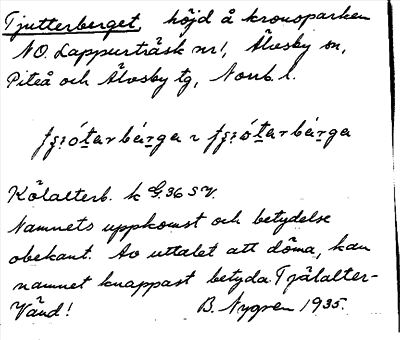 Tjutterberget, höjd å kronoparken
NO. Lappurträsk nr 1, Älvsby sn,
Piteå och Älvsby tg, Norrb. l.
Kölalterb. k G. 36 SV.
Namnets uppkomst och betydelse
obekant. Av uttalet att döma, kan
namnet knappast betyda Tjälalter-
Vänd! B. Nygren 1935.